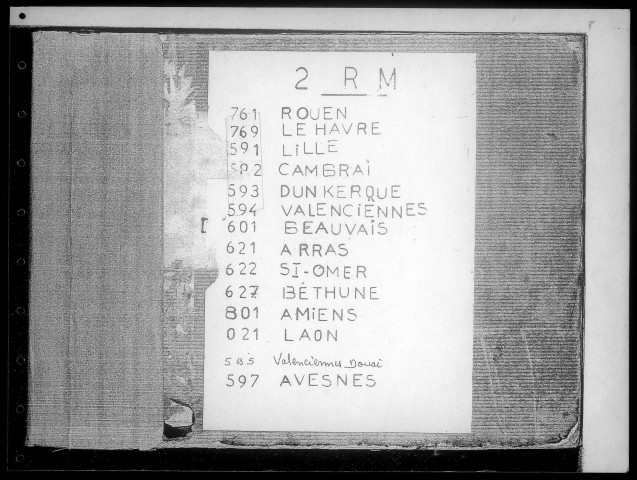 2 R M
761 ROUEN
769 LE HAVRE
591 LiLLE
592 CAMBRAi
593 DUNKERQUE
594 VALENCiËNNES
601 BEAUVAiS
621 ARRAS
622 ST-OMER
627 BÉTHUNE
801 AMiENS
021 LAON
Valenciennes Douai
597 AVESNES